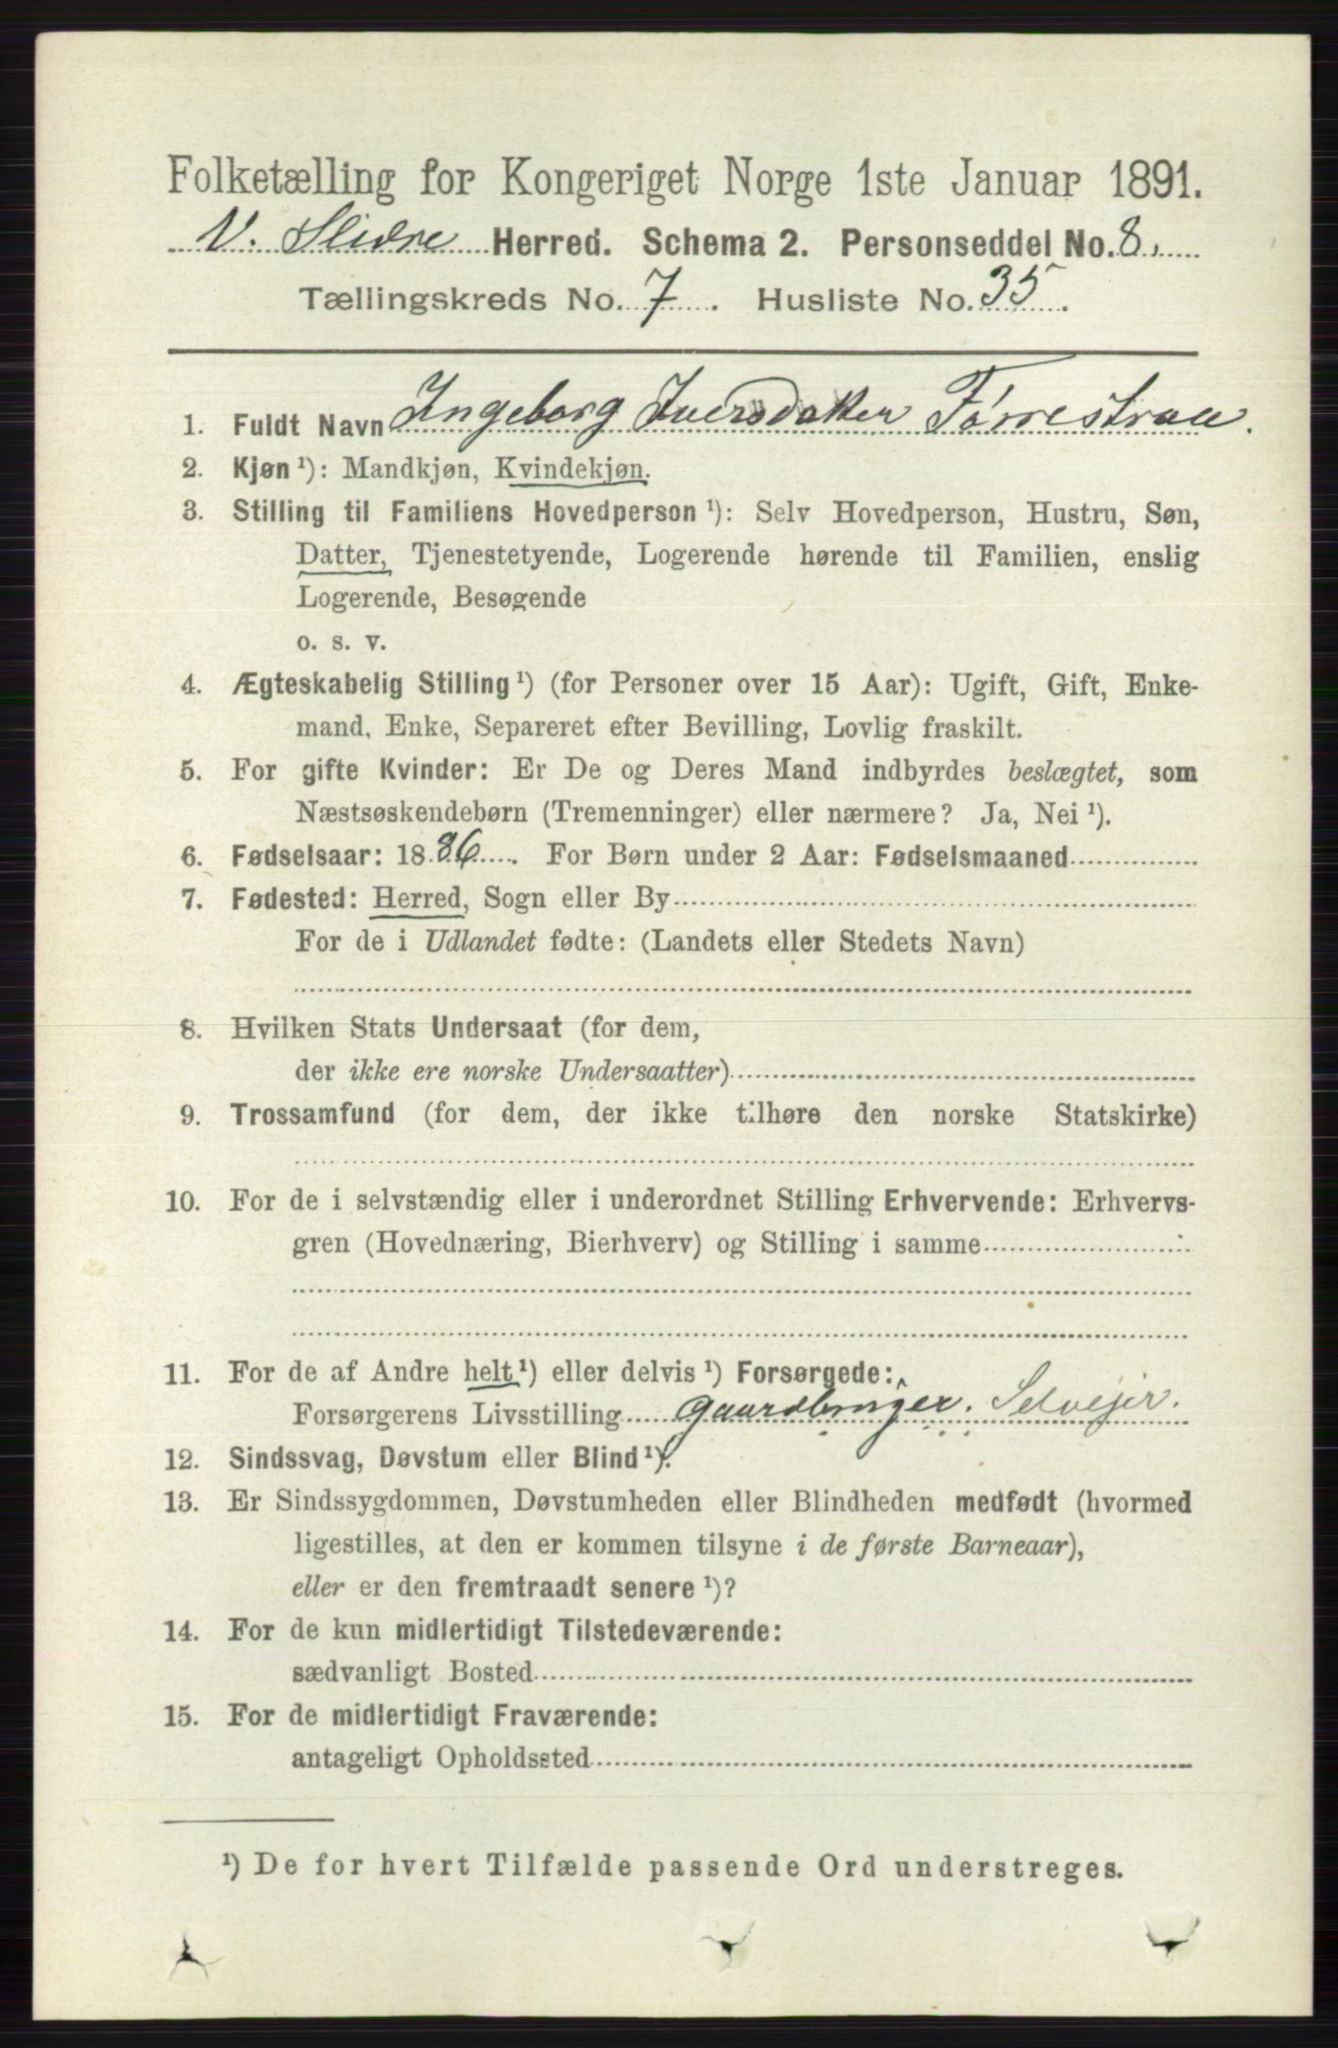 Folketælling for Kongeriget Norge 1ste Januar 1891.
V. Slidre Herred. Schema 2. Personseddel No. 8.
Tællingskreds No. 7. Husliste No. 35.
1. Fuldt Navn Ingeborg Iversdatter Tørrestraa.
2. Kjøn ¹): Mandkjøn, Kvindekjøn.
3. Stilling til Familiens Hovedperson ¹): Selv Hovedperson, Hustru, Søn,
Datter, Tjenestetyende, Logerende hørende til Familien, enslig
Logerende, Besøgende
o. s. v.
4. Ægteskabelig Stilling ¹) (for Personer over 15 Aar): Ugift, Gift, Enke-
mand, Enke, Separeret efter Bevilling, Lovlig fraskilt.
5. For gifte Kvinder: Er De og Deres Mand indbyrdes beslægtet, som
Næstsøskendebørn (Tremenninger) eller nærmere? Ja, Nei ¹).
6. Fødselsaar: 1886. For Børn under 2 Aar: Fødselsmaaned
7. Fødested: Herred, Sogn eller By
For de i Udlandet fødte: (Landets eller Stedets Navn)
8. Hvilken Stats Undersaat (for dem,
der ikke ere norske Undersaatter)
9. Trossamfund (for dem, der ikke tilhøre den norske Statskirke)
10. For de i selvstændig eller i underordnet Stilling Erhvervende: Erhvervs-
gren (Hovednæring, Bierhverv) og Stilling i samme
11. For de af Andre helt ¹) eller delvis ¹) Forsørgede:
Forsørgerens Livsstilling Gaardbruger. Selvejer.
12. Sindssvag, Døvstum eller Blind ¹).
13. Er Sindssygdommen, Døvstumheden eller Blindheden medfødt (hvormed
ligestilles, at den er kommen tilsyne i de første Barneaar),
eller er den fremtraadt senere ¹)?
14. For de kun midlertidigt Tilstedeværende:
sædvanligt Bosted
15. For de midlertidigt Fraværende:
antageligt Opholdssted
¹) De for hvert Tilfælde passende Ord understreges.